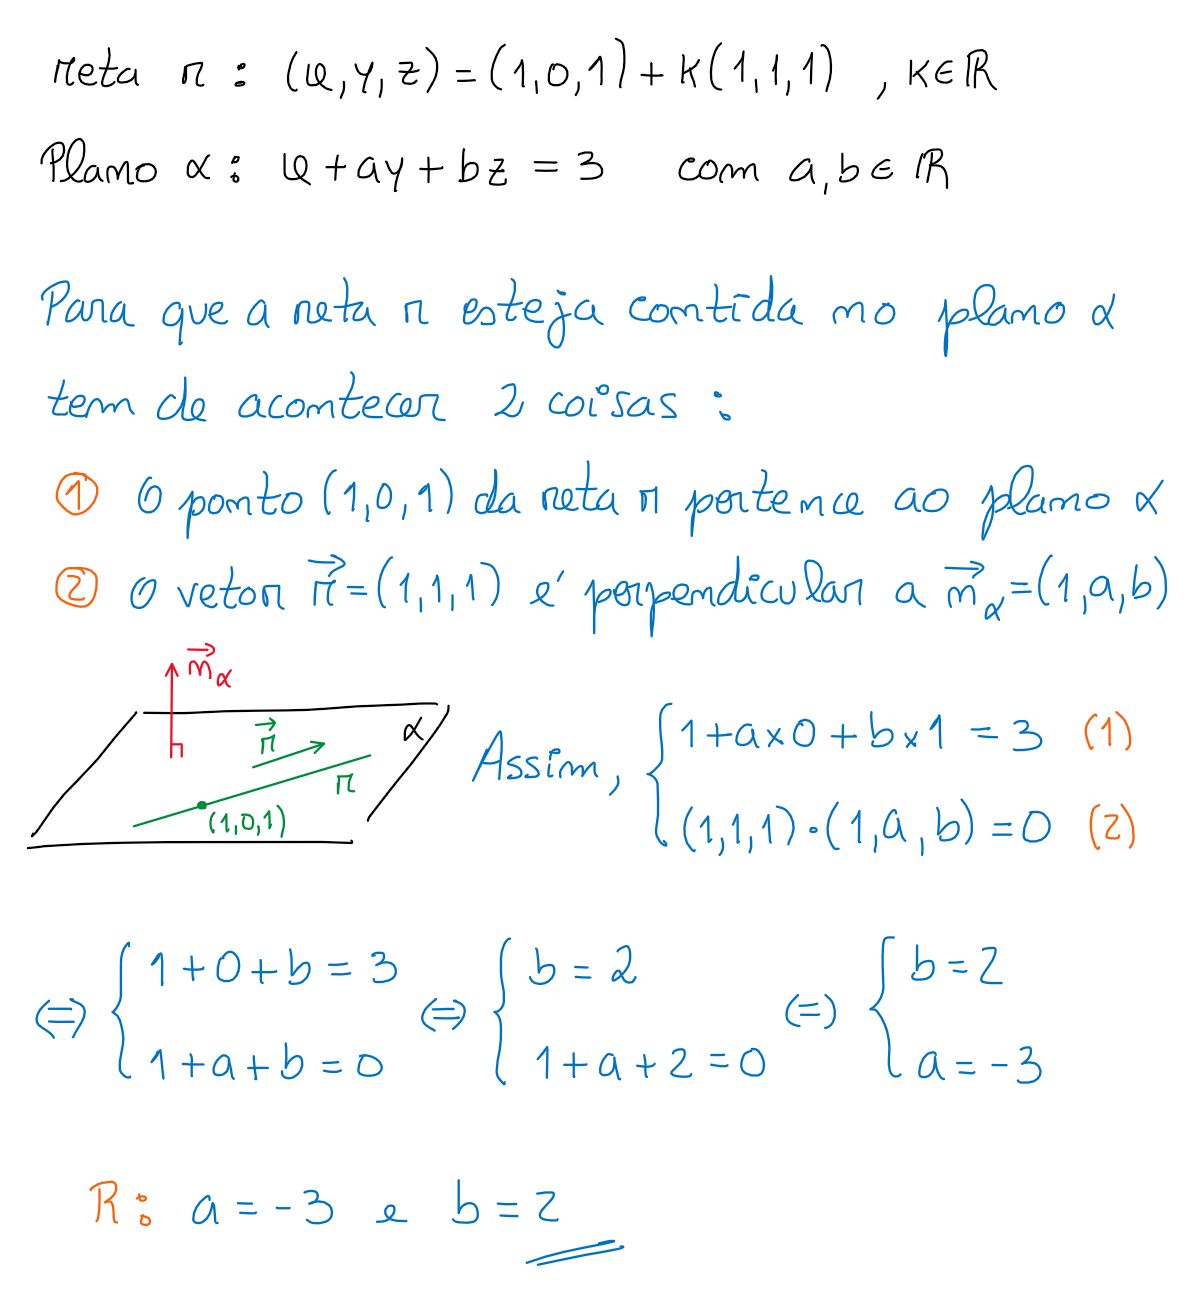 reta r : (x,y,z) = (1,0,1) + k(1,1,1) , k∈ℝ
Plano α : x + ay + bz = 3 com a,b∈ℝ
Para que a reta r esteja contida no plano α
tem de acontecer 2 coisas :
① O ponto (1,0,1) da reta r pertence ao plano α
② O vetor r⃗ = (1,1,1) é perpendicular a n⃗α = (1,a,b)
n⃗α
α
r⃗
r
(1,0,1)
Assim, { 1+a×0+b×1 = 3 (1)
(1,1,1)·(1,a,b) = 0 (2)
⇔ { 1+0+b = 3 ⇔ { b = 2 ⇔ { b = 2
1+a+b = 0 1+a+2 = 0 a = -3
R: a = -3 e b = 2